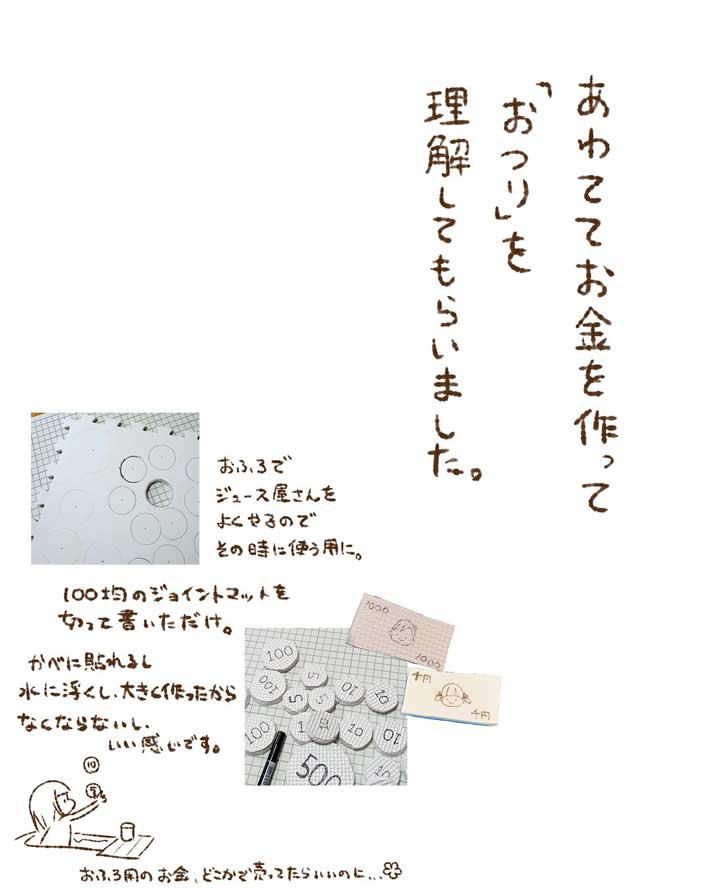 あわててお金を作って
「おつり」を
理解してもらいました。
おふろで
ジュース屋さんを
よくやるので
その時に使う用に。
100均のジョイントマットを
切って書いただけ。
かべに貼れるし
水に浮くし、大きく作ったから
なくならないし、
いい感じです。
1000
1000
4円
4円
100
100
5
5
5
10
10
100
1
10
10
10
500
10
10
おふろ用のお金、どこかで売ってたらいいのに…